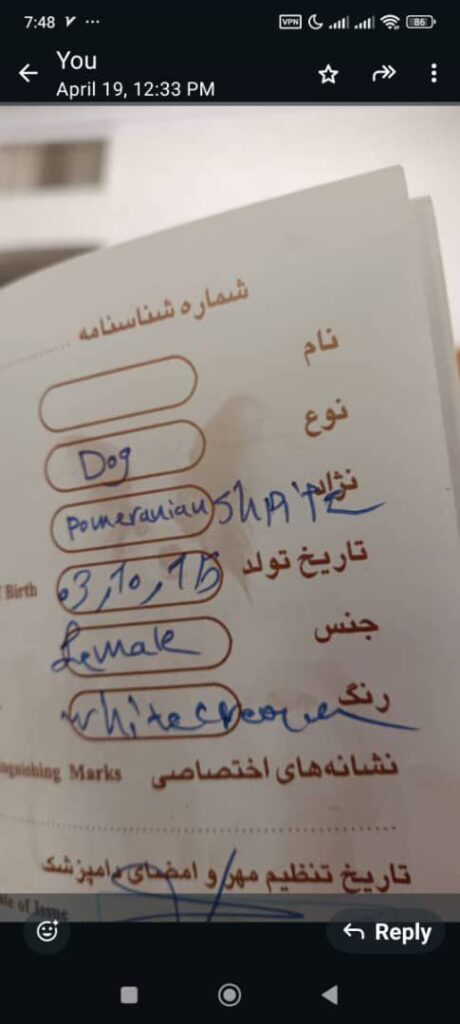 7:48
VPN
86
You
April 19, 12:33 PM
شماره شناسنامه
نام
نوع Dog
نژاد pomeranian
تاریخ تولد 03,10,15
Birth
جنس female
رنگ white
نشانه‌های اختصاصی Marks
تاریخ تنظیم مهر و امضای دامپزشک
ate of Issue
Reply